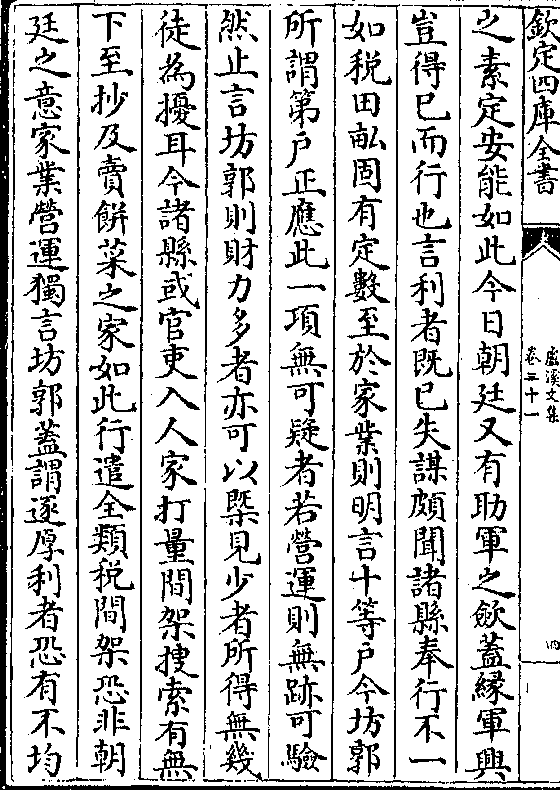 欽定四庫全書
盧溪文集
卷三十一
四
之素定安能如此今日朝廷又有助軍之斂蓋緣軍興
豈得已而行也言利者既已失謀頗聞諸縣奉行不一
如税田畝固有定數至於家業則明言十等戶今坊郭
所謂第戶正應此一項無可疑者若營運則無跡可驗
然止言坊郭則財力多者亦可以槩見少者所得無幾
徒為擾耳今諸縣或官吏入人家打量間架搜索有無
下至抄及賣餅菜之家如此行遣全類税間架恐非朝
廷之意家業營運獨言坊郭蓋謂逐厚利者恐有不均